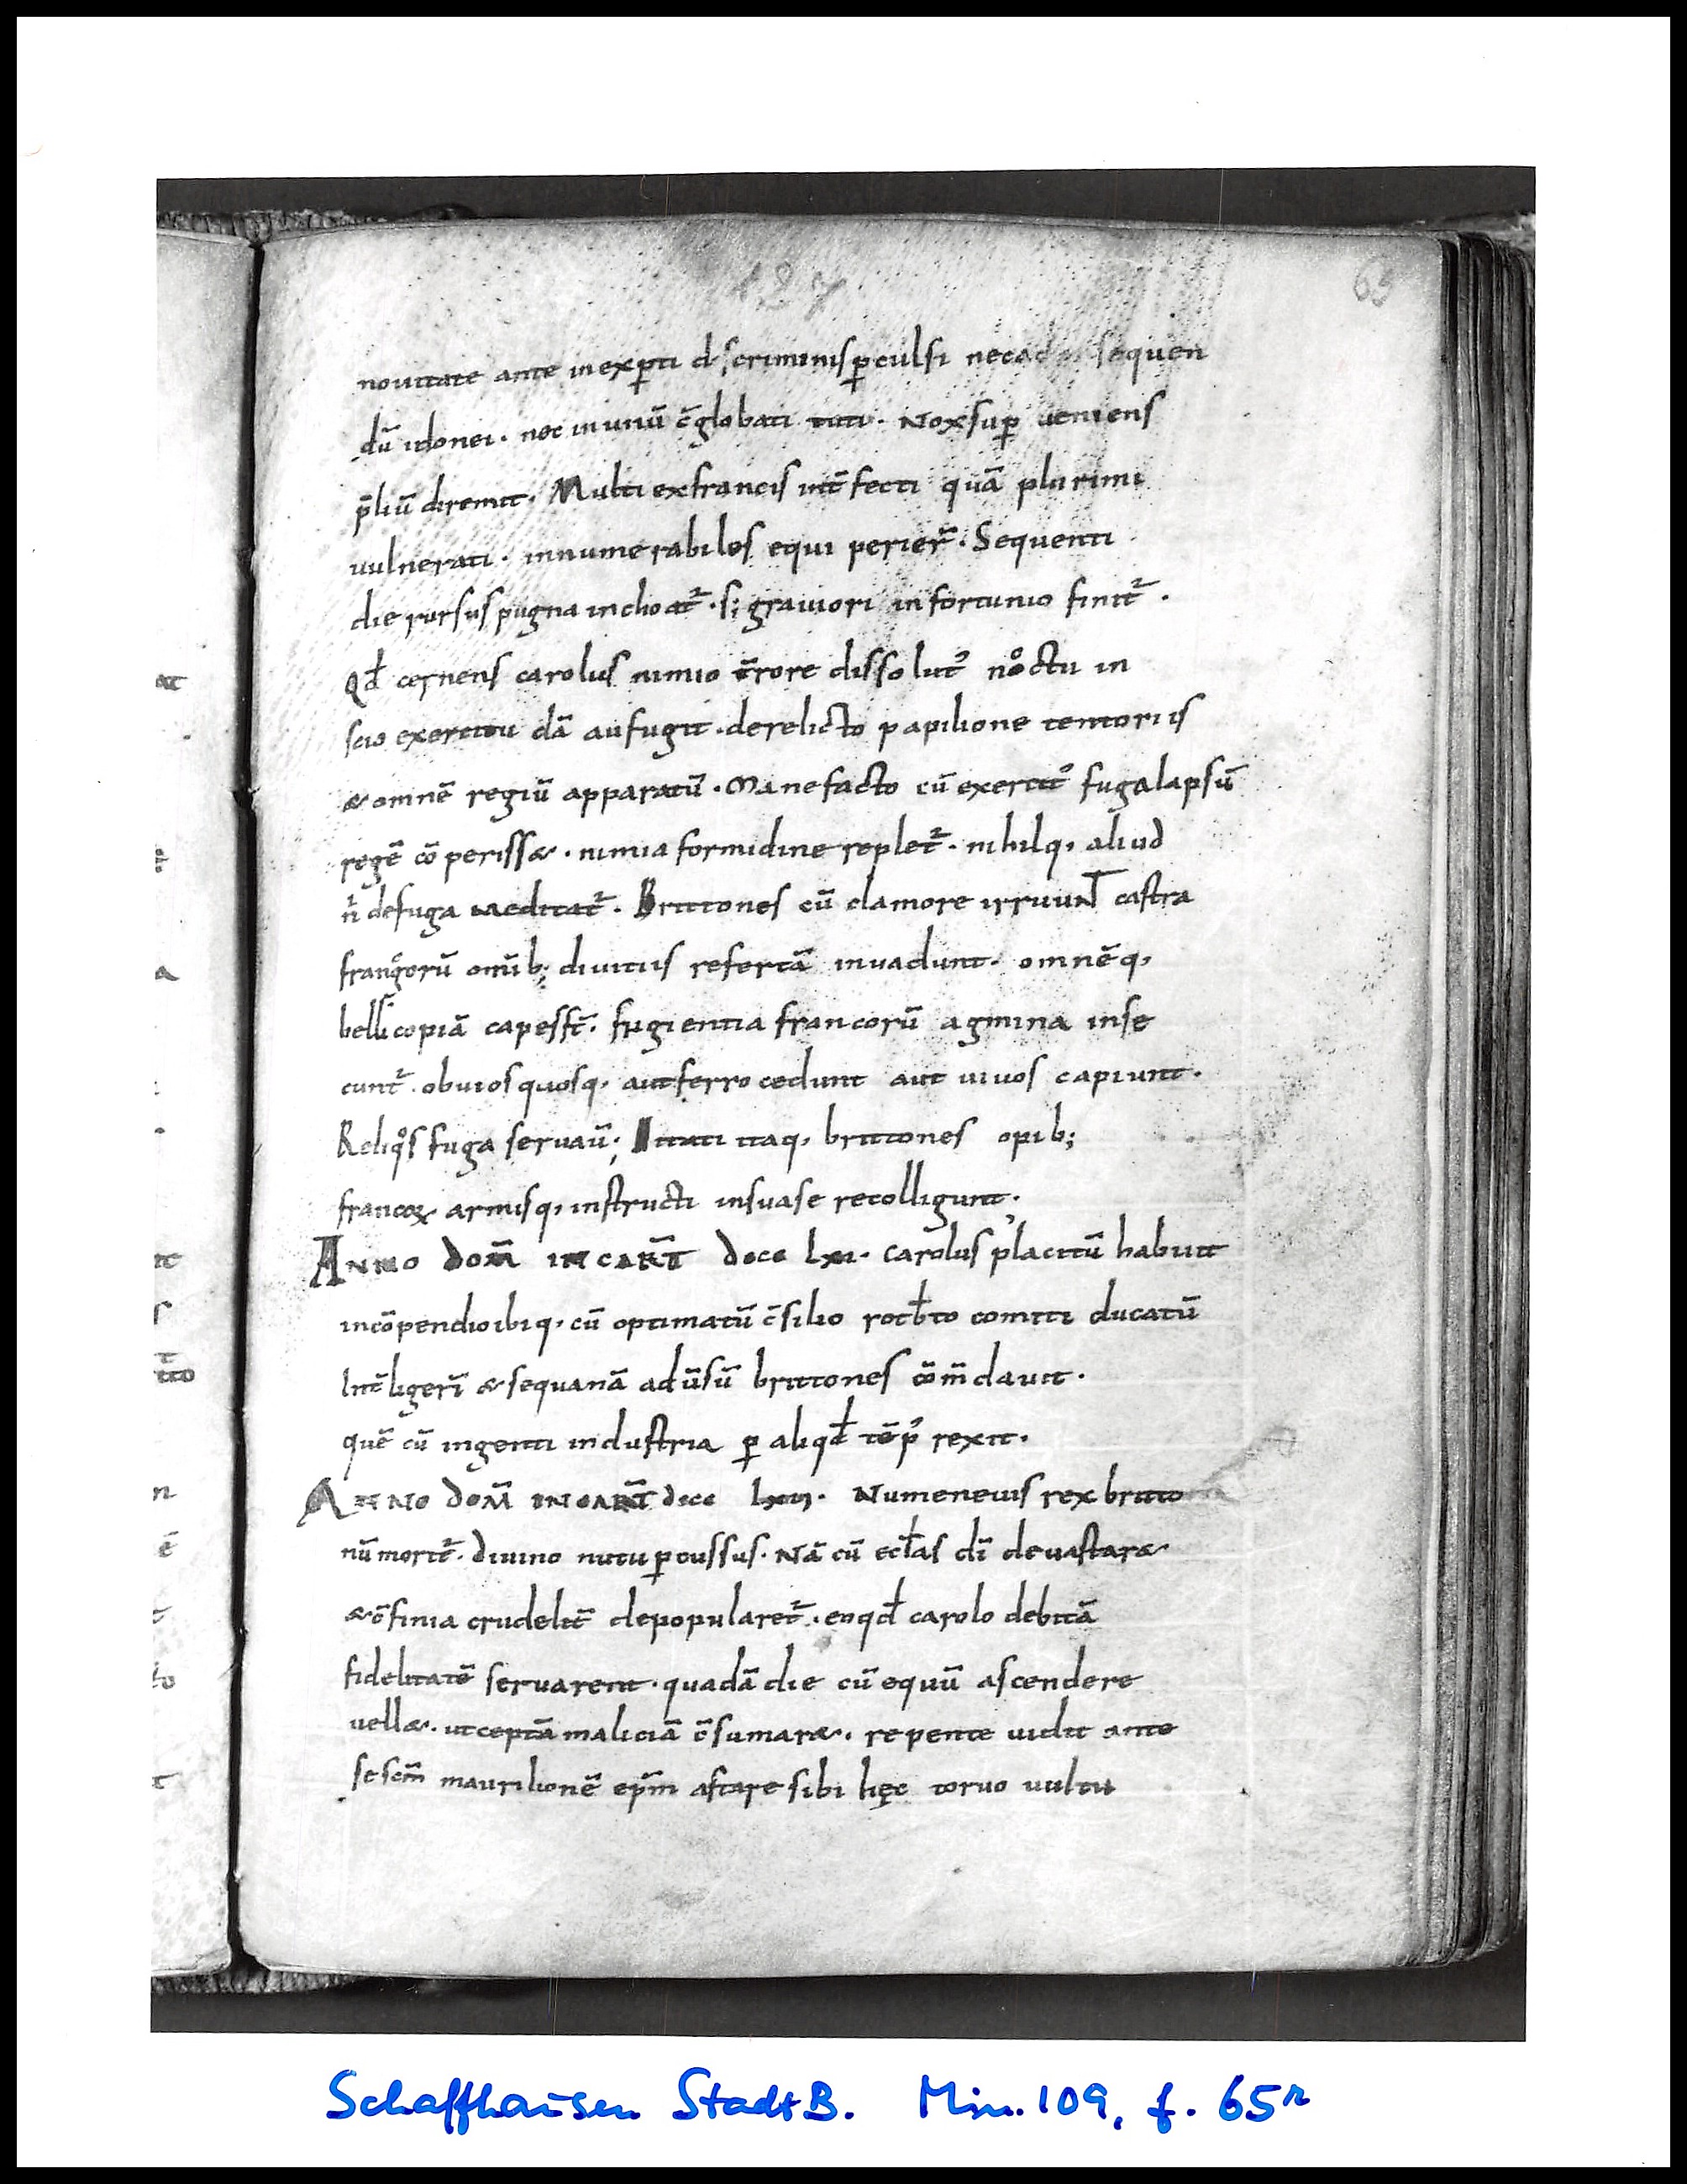 127
65
nouitate ante inexꝑti discriminis ꝑculsi nec ad in sequen
dū idonei · nec in unū c̄globati tuti · Nox suꝑ ueniens
p̄liū diremit · Multi ex francis int̄fecti quā plurimi
uulnerati · innumerabiles equi perier̄ · Sequenti
die rursus pugna inchoat᷑ · s; grauiori infortunio finit᷑ ·
Qđ cernens carolus nimio t̄rore dissolut᷒ noͦctu in
scio exercitu clā aufugit · derelicto papilione tentoriis
& omnē regiū apparatū · Mane facto cū exercit᷒ fuga lapsū
regē cōperiss& · nimia formidine replet᷑ · nihilq, aliud
n̄ de fuga meditat᷑ · Brittones cū clamore irruunt castra
francorū om̄ib; diuitiis refertā inuadunt · omnēq,
belli copiā capess̄t · fugientia francorū agmina inse
cunt᷑ · obuios quosq, aut ferro cedunt aut uiuos capiunt ·
Reliqͦs fuga seruauī; Ditati itaq, brittones opib;
francoꝝ armisq, instructi in sua se recolligunt ·
Anno dom̄ incarn̄t dccc lxi · carolus placitū habuit
in cōpendio ibiq, cū optimatū c̄silio rotƀto comiti ducatū
int̄ ligerī & sequanā adūsū brittones cōm̄dauit ·
quē cū ingenti industria ꝑ aliqđ tēp᷒ rexit ·
Anno dom̄ incarn̄t dccc lxii · Numeneuis rex britto
nū morit᷑ · diuino nutu ꝑcussus · Nā cū eccƚas dī deuastar&
& c̄finia crudelit̄ depopularet᷑ · eo qđ carolo debitā
fidelitatē seruarent · quadā die cū equū ascendere
uell& · ut ceptā maliciā c̄sumar& · repente uidit ante
se sc̄m maurilionē ep̄m astare sibi hęc toruo uultu
Schaffhausen StadtB. Min. 109, f. 65r